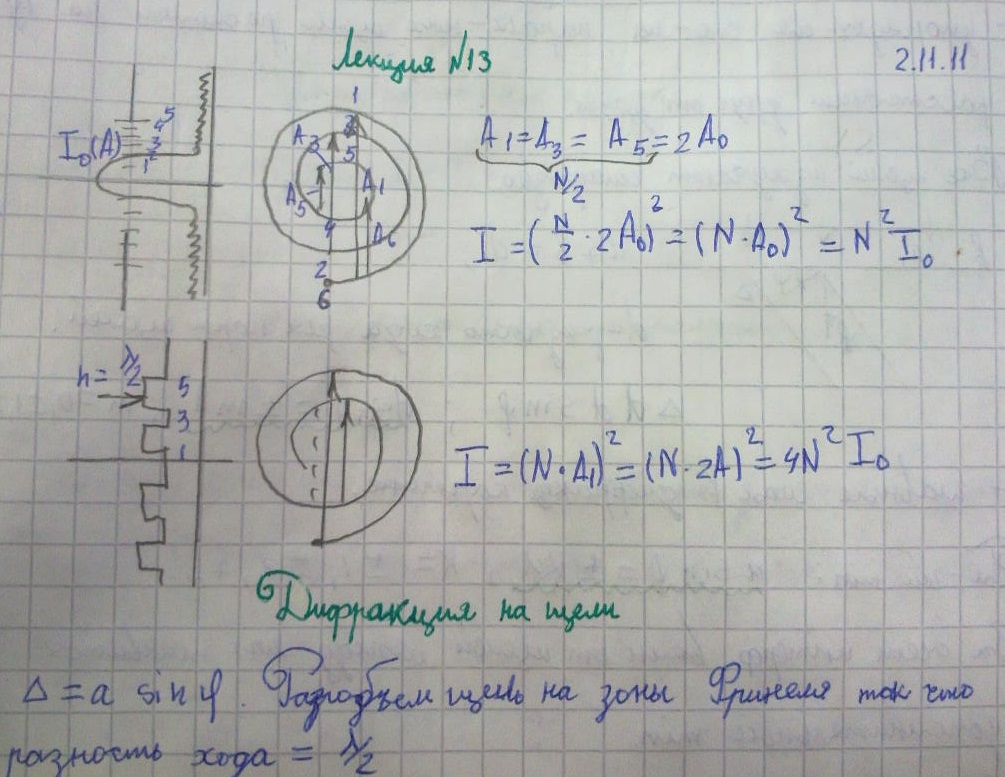 Лекция N13
2.11.11
I₀(A)
5
4
3
2
1
1
3
5
A₃
A₅
A₁
A₆
4
2
6
A₁=A₃= A₅=2A₀
N/2
I = (N/2 · 2A₀)² = (N·A₀)² = N² I₀
h = λ/2
5
3
1
I = (N·A₁)² = (N·2A)² = 4N² I₀
Дифракция на щели
Δ = a sin φ. Разобъем щель на зоны Френеля так что
разность хода = λ/2